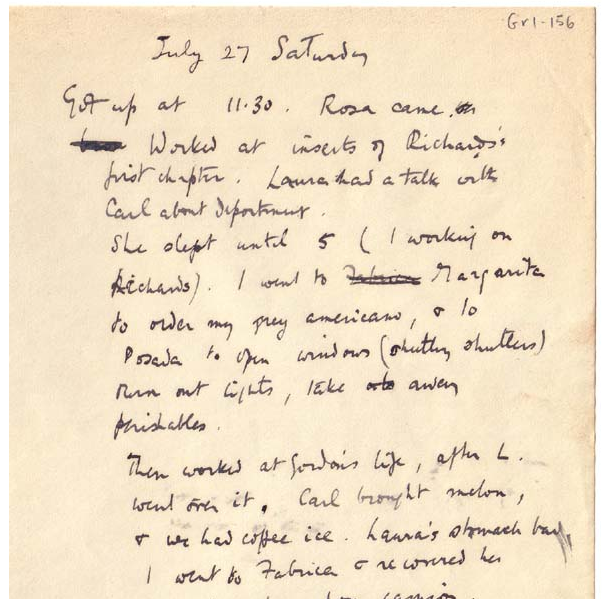 Gr1-156
July 27 Saturday
Got up at 11.30. Rosa came.
Worked at inserts of Richards's
first chapter. Laura had a talk with
Carl about deportment.
She slept until 5 (I working on
Richards). I went to Fabrica Margarita
to order my grey americano, & to
Posada to open windows (shutting shutters)
turn out lights, take away
perishables.
Then worked at Gordon's life, after L.
went over it. Carl brought melon,
& we had coffee ice. Laura's stomach bad,
I went to Fabrica & recovered her